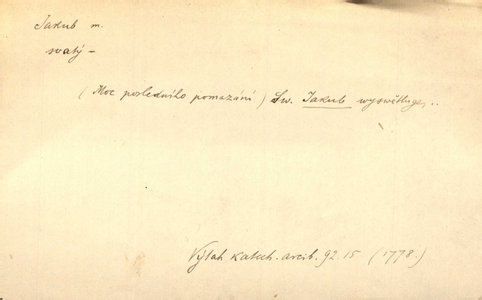 Jakub m.
svatý –
( Moc posledního pomazání ) Sw. Jakub wyswětluge, ..
Výtah katech. arcib. 92. 15 (1778.)